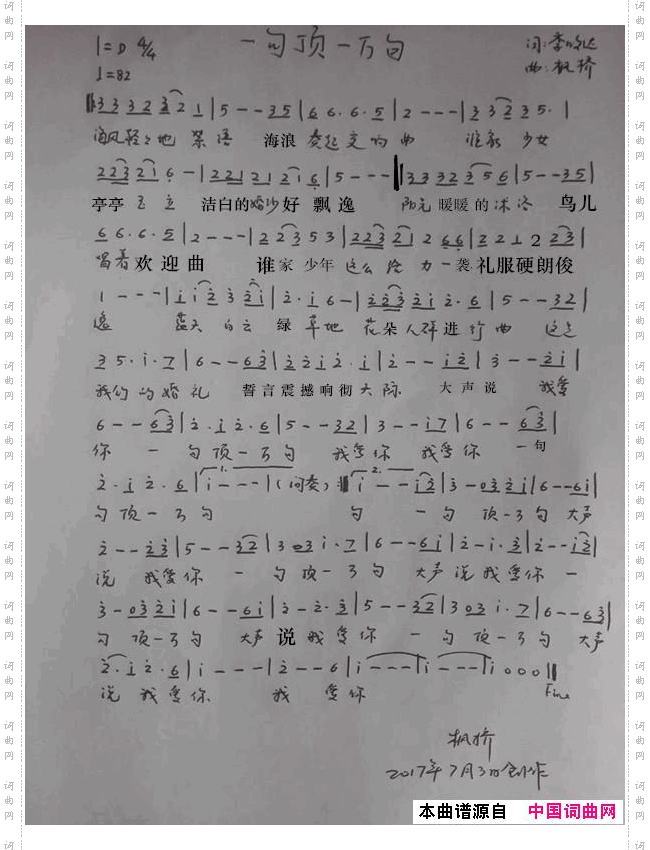 1=D 4/4 一句顶一万句
♩=82 曲:枫桥
3 3 3 2 3 2 1 | 5 - - 3 5 | 6 6 · 6 · 5 | 2 - - - | 3 3 2 3 5 · |
海风轻轻地 海浪 奏起交响曲 谁家 少女
2 2 3 2 1 6 - | 2 2 1 2 1 2 1 6 | 5 - - - | 3 3 3 2 3 5 6 | 5 - - 3 5 |
亭亭玉立 洁白的婚纱好飘逸 阳光暖暖的沐浴 鸟儿
6 6 · 6 · 5 | 2 - - - | 2 2 3 5 3 | 2 2 3 2 1 2 6 6 | 2 2 1 2 2 3 |
唱着欢迎曲 谁家少年这么给力 一袭礼服硬朗俊
1 - - - | i i 2 3 2 i | 2 · i 6 - | 2 2 3 2 i 2 · 6 | 5 - - 3 2 |
逸 蓝天白云绿草地 花朵人群进行曲 这是
3 5 · i · 7 | 6 - - 6 3 | 2 2 i 2 · i | 2 - - i 2 | 3 - - 2 i |
我们的婚礼 誓言震撼响彻天际 大声说 我爱
6 - - 6 3 | 2 · i 2 · 6 | 5 - - 3 2 | 3 - - i 7 | 6 - - 6 3 |
你 一句顶一万句 我爱你 我爱你 一句
2 · i 2 · 6 | i - - - | (间奏) :| i - - i 2 | 3 - 0 3 2 i | 6 - - 6 i |
句顶一万句 句 一句 顶一万句 大声
2 - - 2 3 | 5 - - 3 2 | 3 0 3 i · 7 | 6 - - 6 i | 2 - i · 3 | 2 - - i 2 |
说 我爱你 一句顶一万句 大声说我爱你 一
3 - 0 3 2 i | 6 - - 6 i | 2 - 2 · 3 | 5 - - 3 2 | 3 0 3 i · 7 | 6 - - 6 3 |
句顶一万句 大声说我爱你 一句顶一万句 大声
2 · i 2 · 6 | i - - - | 2 - - 6 | i - - - | i - - - | i 0 0 0 ||
说我爱你 我爱你 Fine
枫桥
2017年7月3日创作
本曲谱源自 中国词曲网
词曲网